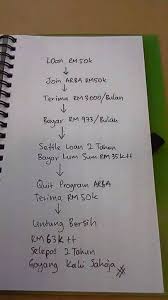 Loan RM 50K
Join ARBA RM50K
Terima RM 3000/Bulan
Bayar RM 973/Bulan
Settle Loan 2 Tahun
Bayar Lum Sum RM35K++
Quit Program ARBA
Terima RM 50K
Untung Bersih
RM 63K ++
Selepas 2 Tahun
Goyang Kaki Sahaja